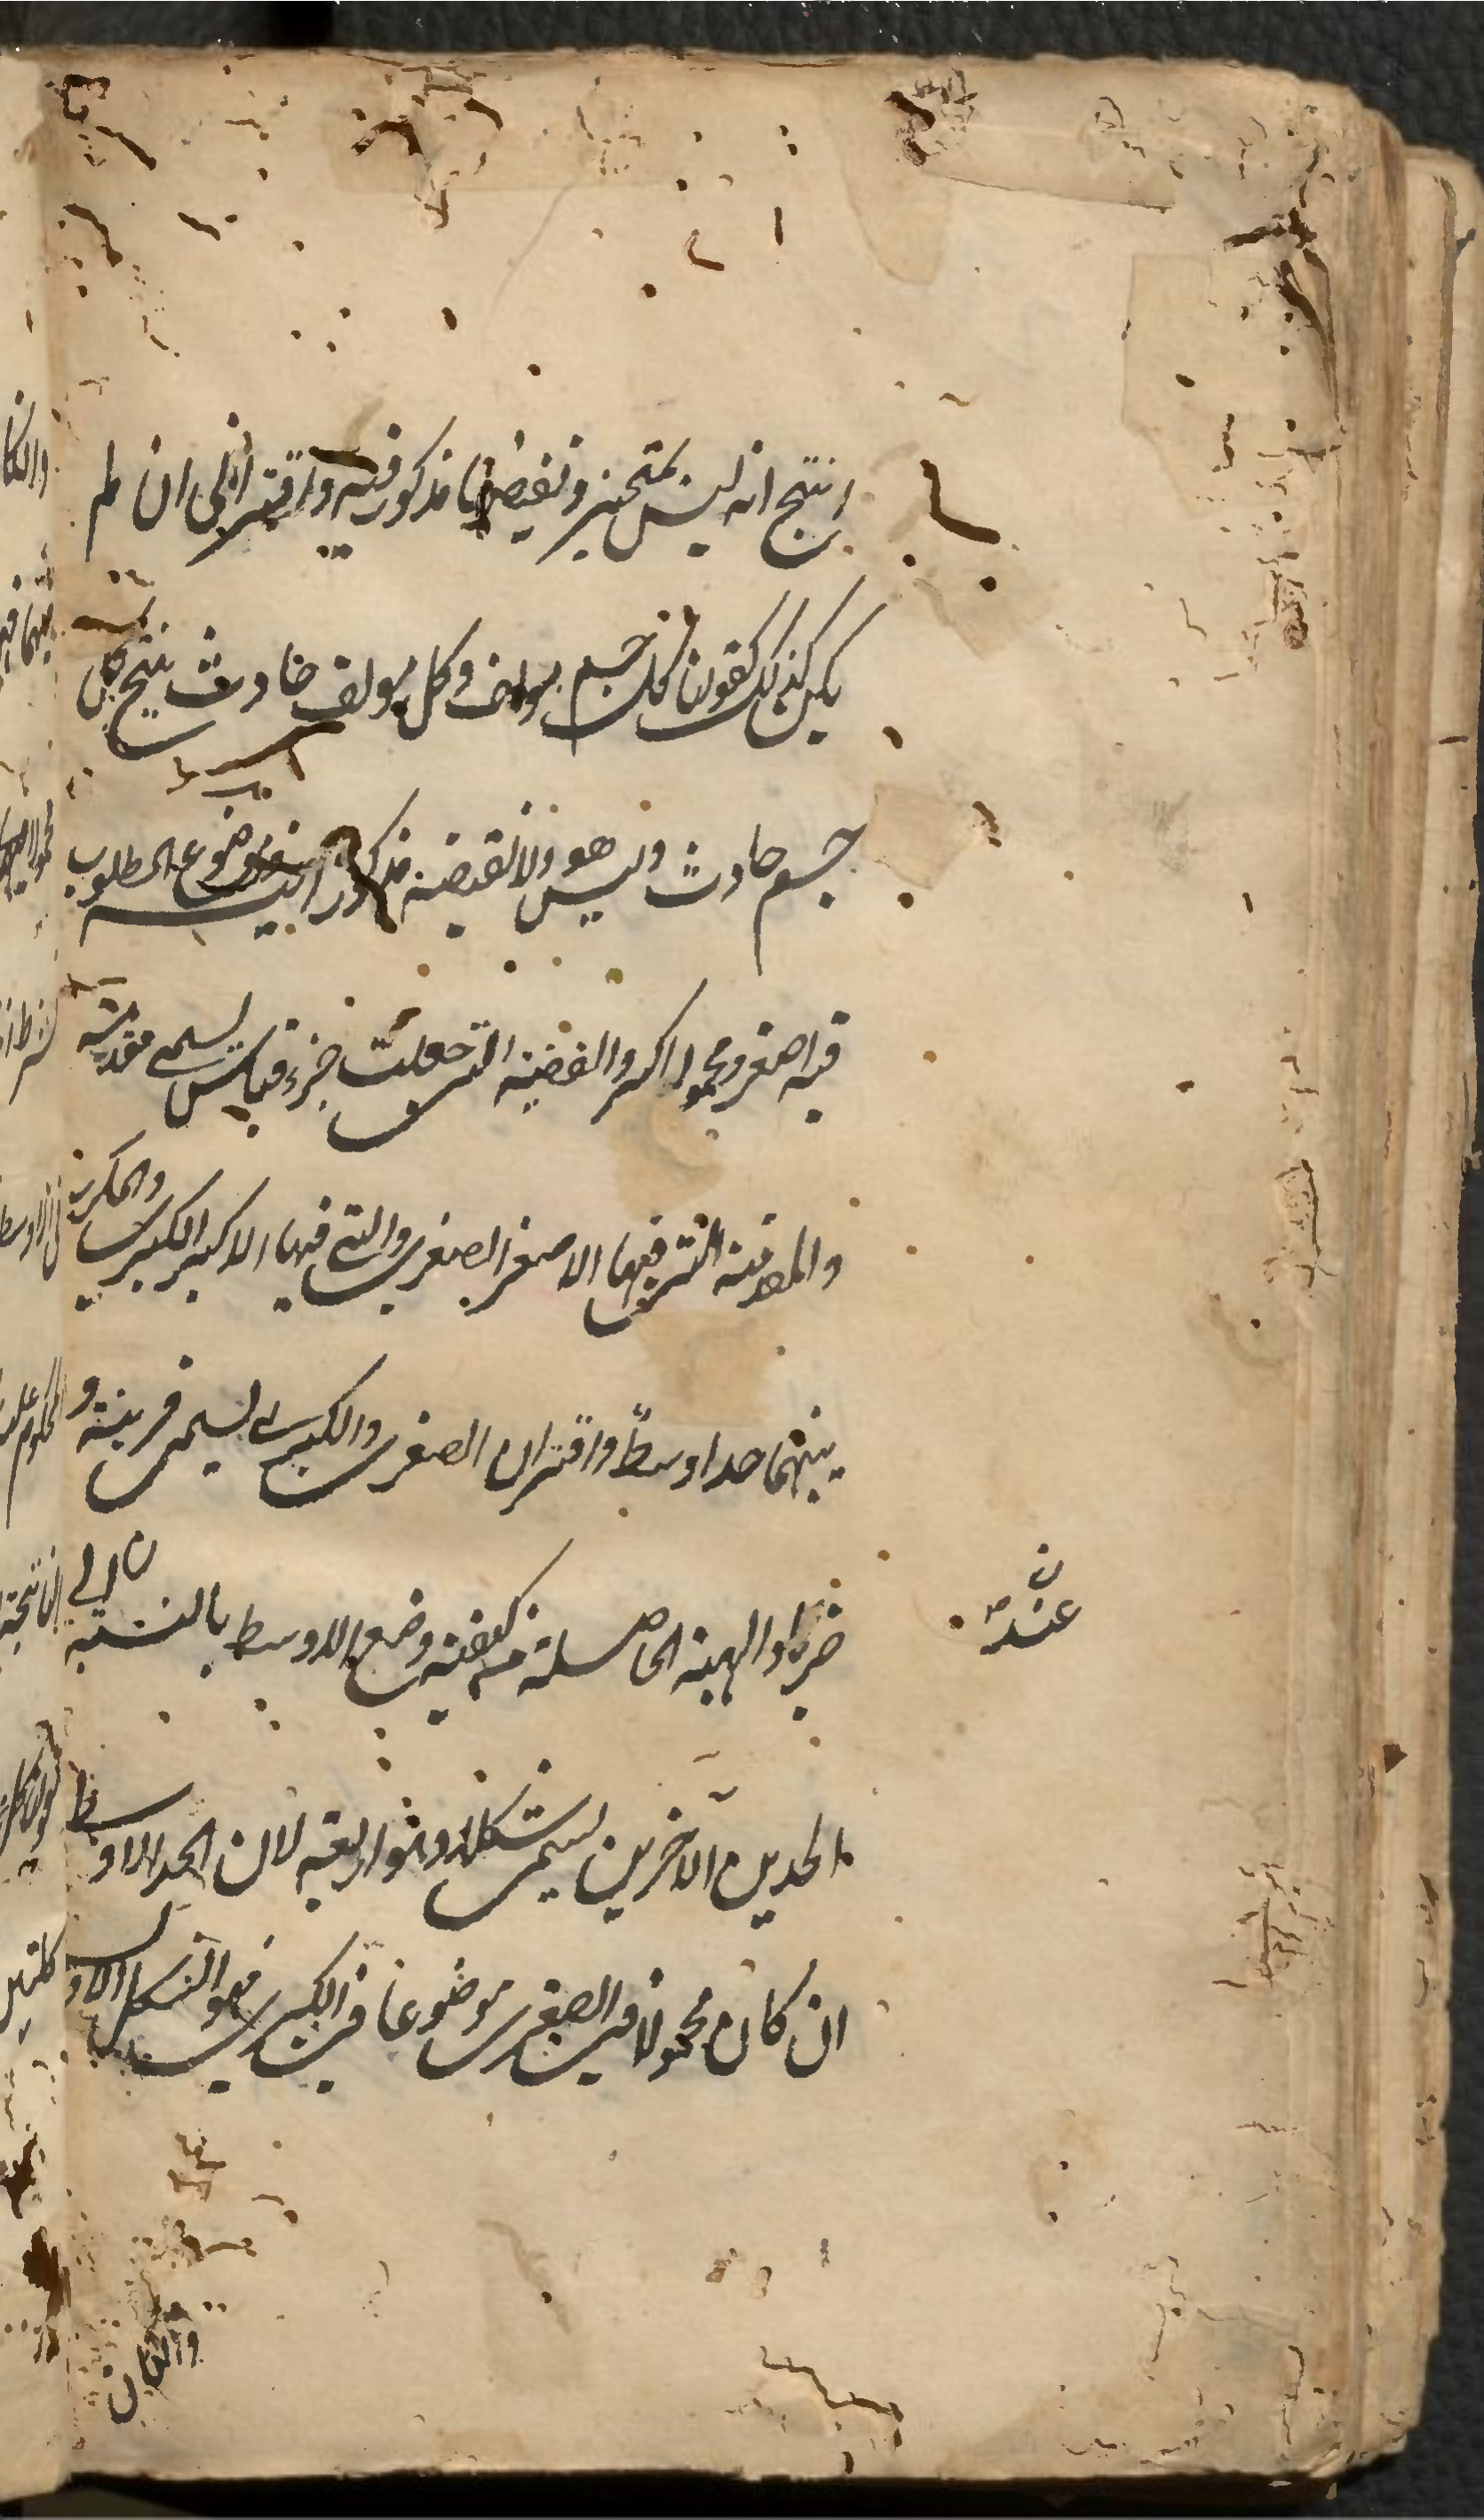 انتج انه ليس بمتحيز ونقيضها مذكور فيه واقتراني ان لم
يكن كذلك كقولنا كل جسم مولف وكل مولف حادث ينتج كل
جسم حادث وليس هو ولا نقيضه مذكورا فيه وموضوع المطلوب
فيه اصغر ومحموله اكبر والقضية التى جعلت جزء قياس يسمى مقدمة
والمقدمة التى فيها الاصغر الصغرى والتي فيها الاكبر الكبرى والمكرر
بينهما حدا اوسطً واقتران الصغرى والكبرى يسمى قرينة و
ضربا والهيئة الحاصلة من كيفية وضع الاوسط بالنسبة الى
عند
الحدين الآخرين يسمى شكلا وهو اربعة لان الحد الاوسط
ان كان محمولا فى الصغرى موضوعا فى الكبرى فهو الشكل الاول
والكا